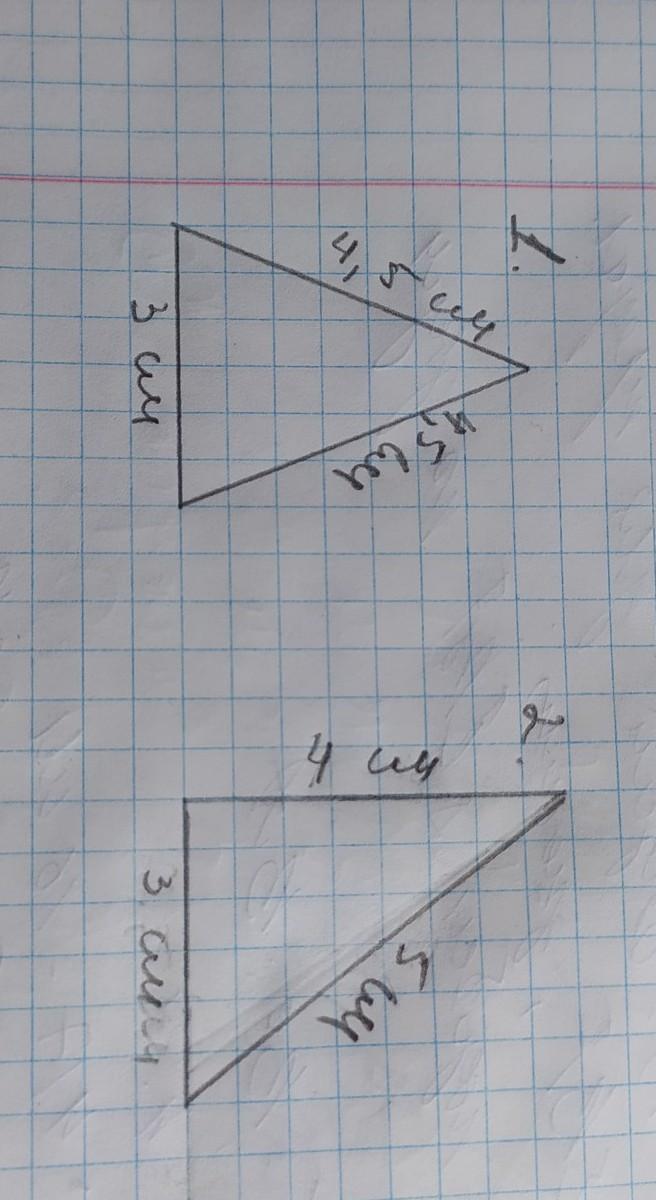 1.
4,5 см
4,5 см
3 см
2.
4 см
5 см
3 см